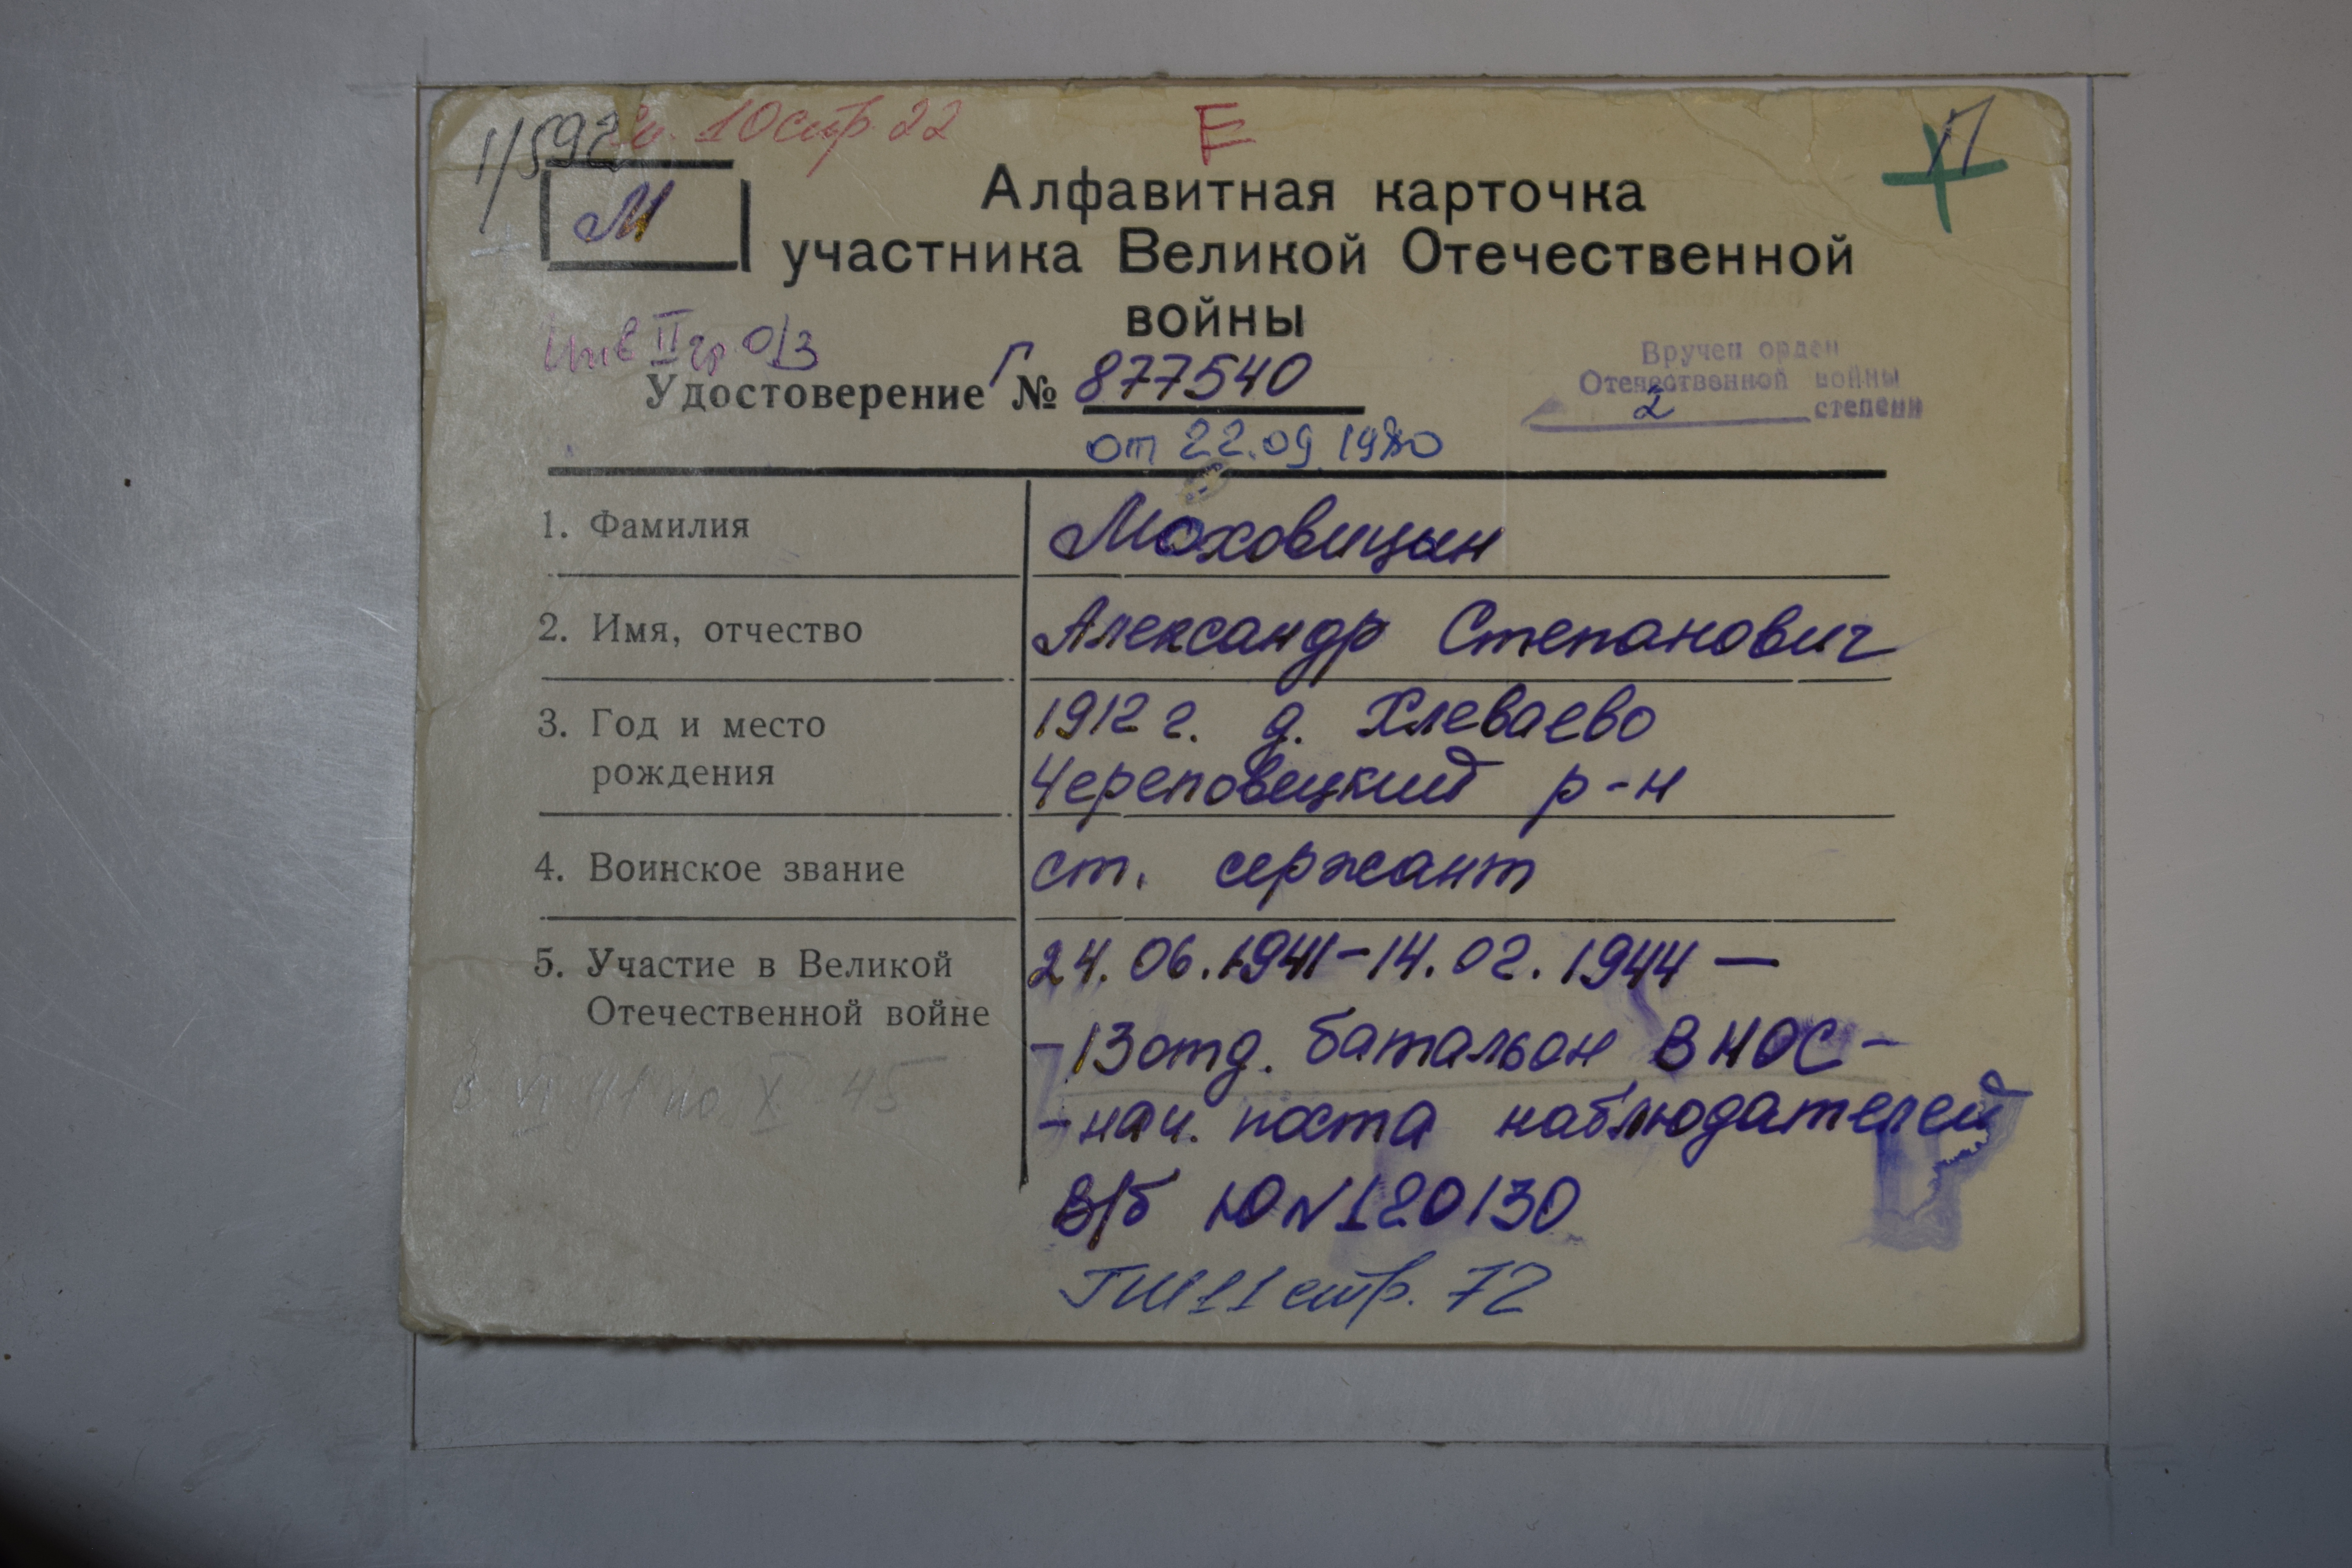 1/597 кн. 10 стр. 22
Е
П
М
Алфавитная карточка
участника Великой Отечественной
войны
Инв II гр. О/З
Удостоверение Г № 877540
от 22.09.1980
Вручен орден
Отечественной войны
2 степени
1. Фамилия Моховицын
2. Имя, отчество Александр Степанович
3. Год и место 1912 г. д. Хлеваево
рождения Череповецкий р-н
4. Воинское звание ст. сержант
5. Участие в Великой 24.06.1941-14.02.1944 —
Отечественной войне
-13 отд. батальон ВНОС-
VI 41 по X 45
-нач. поста наблюдателей
В/б Ю N 120130
стр. 72